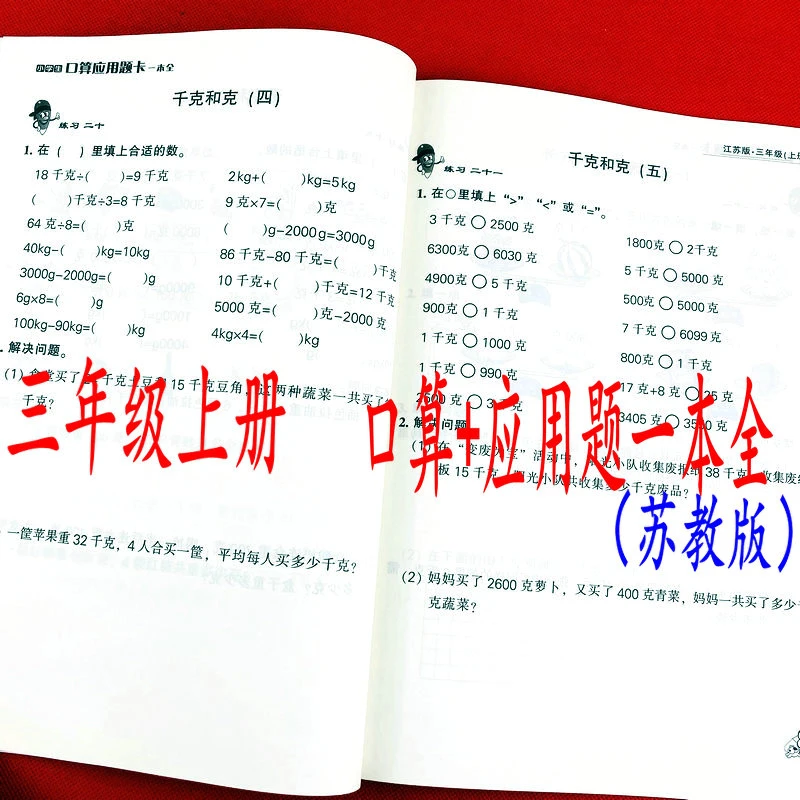 小学生口算应用题卡一本全
千克和克（四）
练习 二十
1. 在（ ）里填上合适的数。
18千克÷( )=9千克 2kg+( )kg=5kg
( )千克÷3=8千克 9克×7=( )克
64克÷8=( )克 ( )g-2000g=3000g
40kg-( )kg=10kg 86千克-80千克=( )千克
3000g-2000g=( )g 10千克+( )千克=12千克
6g×8=( )g 5000克=( )克-2000克
100kg-90kg=( )kg 4kg×4=( )kg
. 解决问题。
(1) 食堂买了 千克土豆和15千克豆角，这两种蔬菜一共买了
千克？
一筐苹果重32千克，4人合买一筐，平均每人买多少千克？
江苏版·三年级(上册
千克和克（五）
练习 二十一
1. 在○里填上“>”“<”或“=”。
3千克○2500克 1800克○2千克
6300克○6030克 5千克○5000克
4900克○5千克 500克○5000克
900克○1千克 7千克○6099克
1千克○1000克 800克○1千克
1千克○990克 17克+8克○25克
2500克○3千克 3405克○3550克
2. 解决问题
(1) 在“变废为宝”活动中，阳光小队收集废报纸38千克，收集废纸
板15千克，阳光小队共收集多少千克废品？
(2) 妈妈买了2600克萝卜，又买了400克青菜，妈妈一共买了多少千
克蔬菜？
三年级上册 口算+应用题一本全
（苏教版）